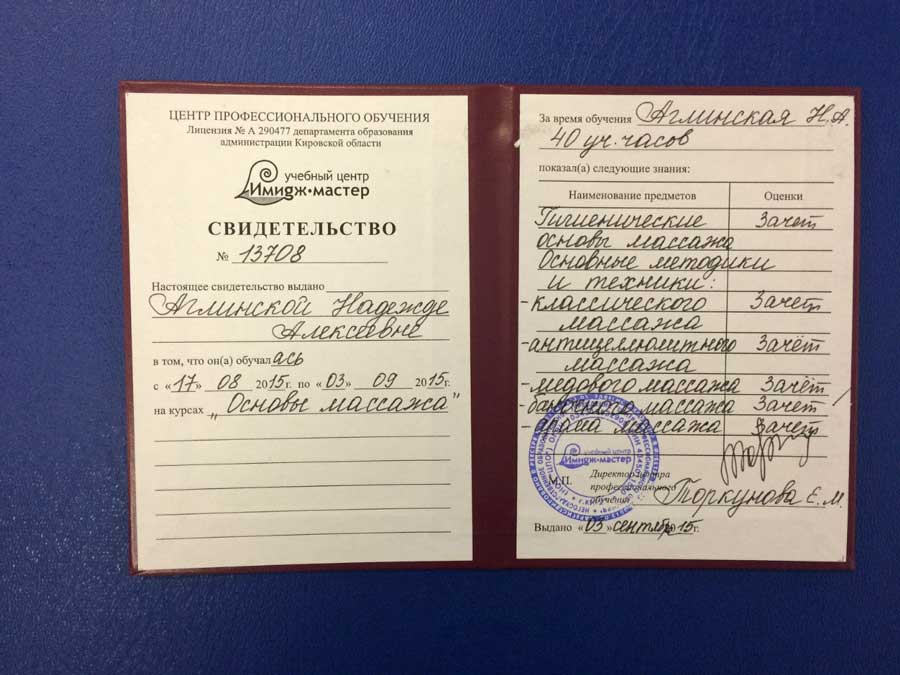 ЦЕНТР ПРОФЕССИОНАЛЬНОГО ОБУЧЕНИЯ
Лицензия № А 290477 департамента образования
администрации Кировской области
учебный центр
Имидж·мастер
СВИДЕТЕЛЬСТВО
№ 13708
Настоящее свидетельство выдано
Аглинской Надежде
Алексеевне
в том, что он(а) обучалась
с «17» 08 2015г. по «03» 09 2015г.
на курсах „Основы массажа"
За время обучения Аглинская Н.А.
40 уч. часов
показал(а) следующие знания:
Наименование предметов Оценки
Гигиенические Зачёт
основы массажа
Основные методики
и техники:
-классического Зачёт
массажа
-антицеллюлитного Зачёт
массажа
-медового массажа Зачёт
-баночного массажа Зачёт
массажа Зачёт
учебный центр
Имидж·мастер
М.П.
Директор центра
профессионального
обучения Торкунова Е.М.
Выдано «03» сентября 2015г.